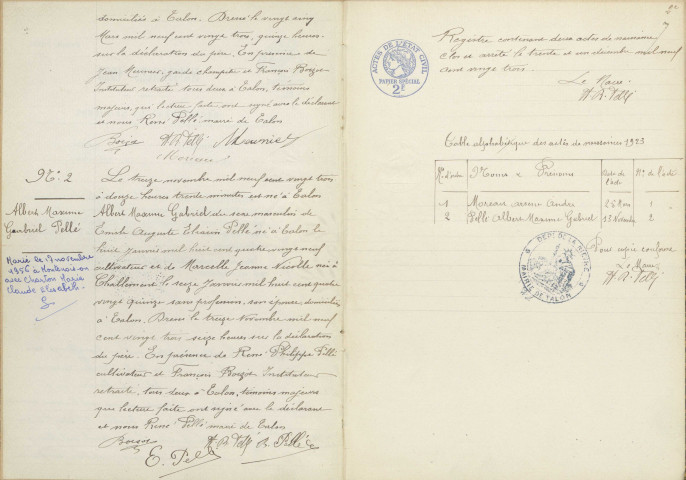 domiciliés à Talon. Dressé le vingt cinq
Mars mil neuf cent vingt trois, quinze heures
sur la déclaration du père. En présence de
Jean Meunier, garde champêtre et François Bourgos
Instituteur retraité tous deux à Talon, témoins
majeurs, qui lecture faite ont signé avec le déclarant
et nous René Pellé maire de Talon
H. R. Pellé Meunier
N° 2
Albert Maxime
Gabriel Pellé
Marié le 17 novembre
1956 à
avec Charton Marie
Claude Elisabeth
Le treize novembre mil neuf cent vingt trois
à douze heures trente minutes est né à Talon
Albert Maxime Gabriel du sexe masculin de
Emile Auguste Pellé né à Talon le
huit Janvier mil huit cent quatre vingt neuf
cultivateur et de Marcelle Jeanne Nicolle née à
Challement le seize Janvier mil huit cent quatre
vingt quinze sans profession, son épouse domiciliés
à Talon. Dressé le treize Novembre mil neuf
cent vingt trois seize heures sur la déclaration
du père. En présence de René Philippe Pellé
cultivateur et François Bourgos Instituteur
retraité, tous deux à Talon, témoins majeurs
que lecture faite ont signé avec le déclarant
et nous René Pellé maire de Talon
H. R. Pellé R. Pellé
E. Pellé
2e
ACTES DE L'ÉTAT CIVIL
PAPIER SPÉCIAL
2F
Registre contenant deux actes de naissances
Clos et arrêté le trente et un décembre mil neuf
cent vingt trois
Le Maire
H. R. Pellé
Table alphabétique des actes de naissances 1923
N° d'ordre Noms et Prénoms Date de l'acte N° de l'acte
1 Moreau André 25 Mars 1
2 Pellé Albert Maxime Gabriel 13 Novembre 2
Pour copie conforme
Le Maire
H. R. Pellé
DEPT DE LA NIEVRE
MAIRIE DE TALON